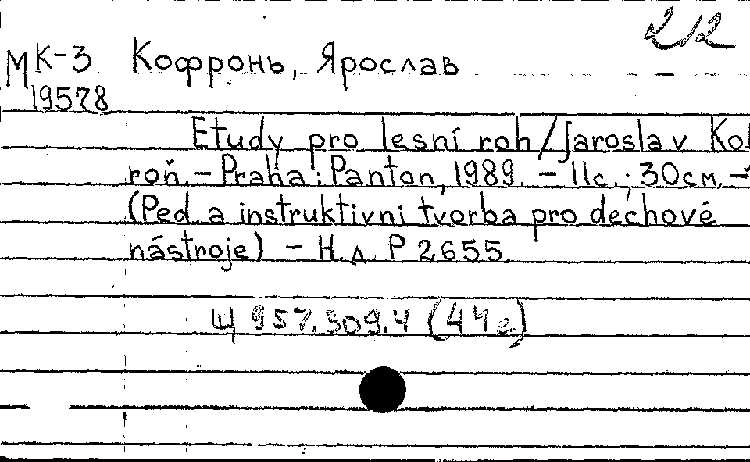 2/2
МК-3 Кофронь, Ярослав
19578
Etudy pro lesní roh/Jaroslav Kof
roň. – Praha : Panton, 1989. – 11с. ; 30см. –
(Ped. a instruktivni tvorba pro dechové
nástroje) – Н.д. P 2655.
Щ957.309.4 (44e)